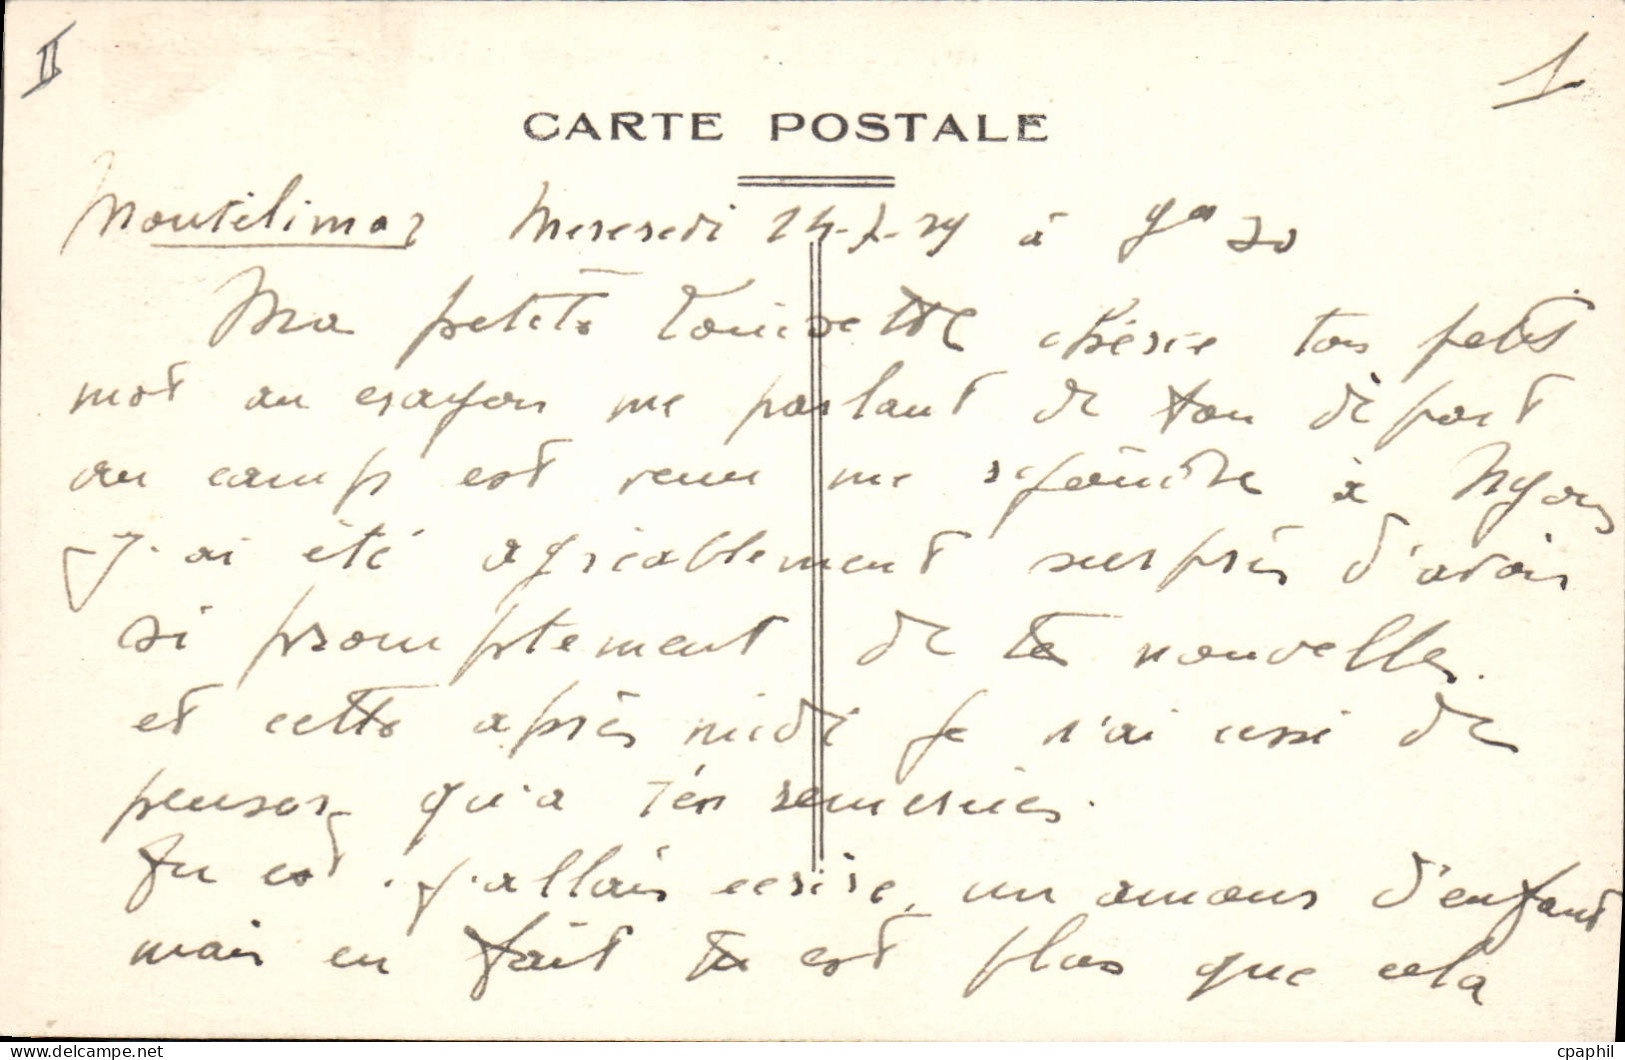 II
1
CARTE POSTALE
Montélimar Mercredi 24-7-29 à 9h 30
Ma petite Louisette chérie ton petit
mot au crayon me parlant de ton départ
au camp est venu me rejoindre à Nyons
J'ai été agréablement surpris d'avoir
si promptement de te nouvelles.
et cette après midi je n'ai cessé de
penser qu'a t'en remercier.
Tu est. j'allais écrire, un amour d'enfant
mais en fait tu est plus que cela
cpaphil